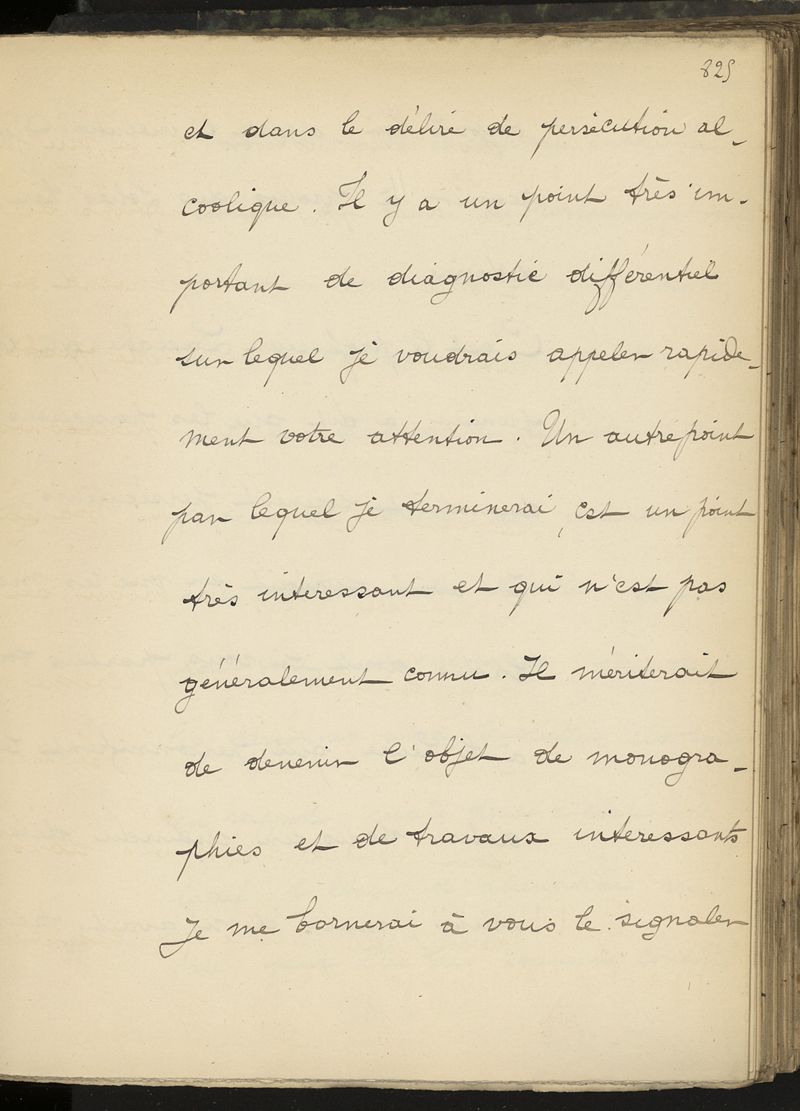 825
et dans le délire de persécution al-
coolique. Il y a un point très im-
portant de diagnostic différentiel
sur lequel je voudrais appeler rapide-
ment votre attention. Un autre point
par lequel je terminerai, est un point
très intéressant et qui n'est pas
généralement connu. Il mériterait
de devenir l'objet de monogra-
phies et de travaux intéressants
Je me bornerai à vous le signaler